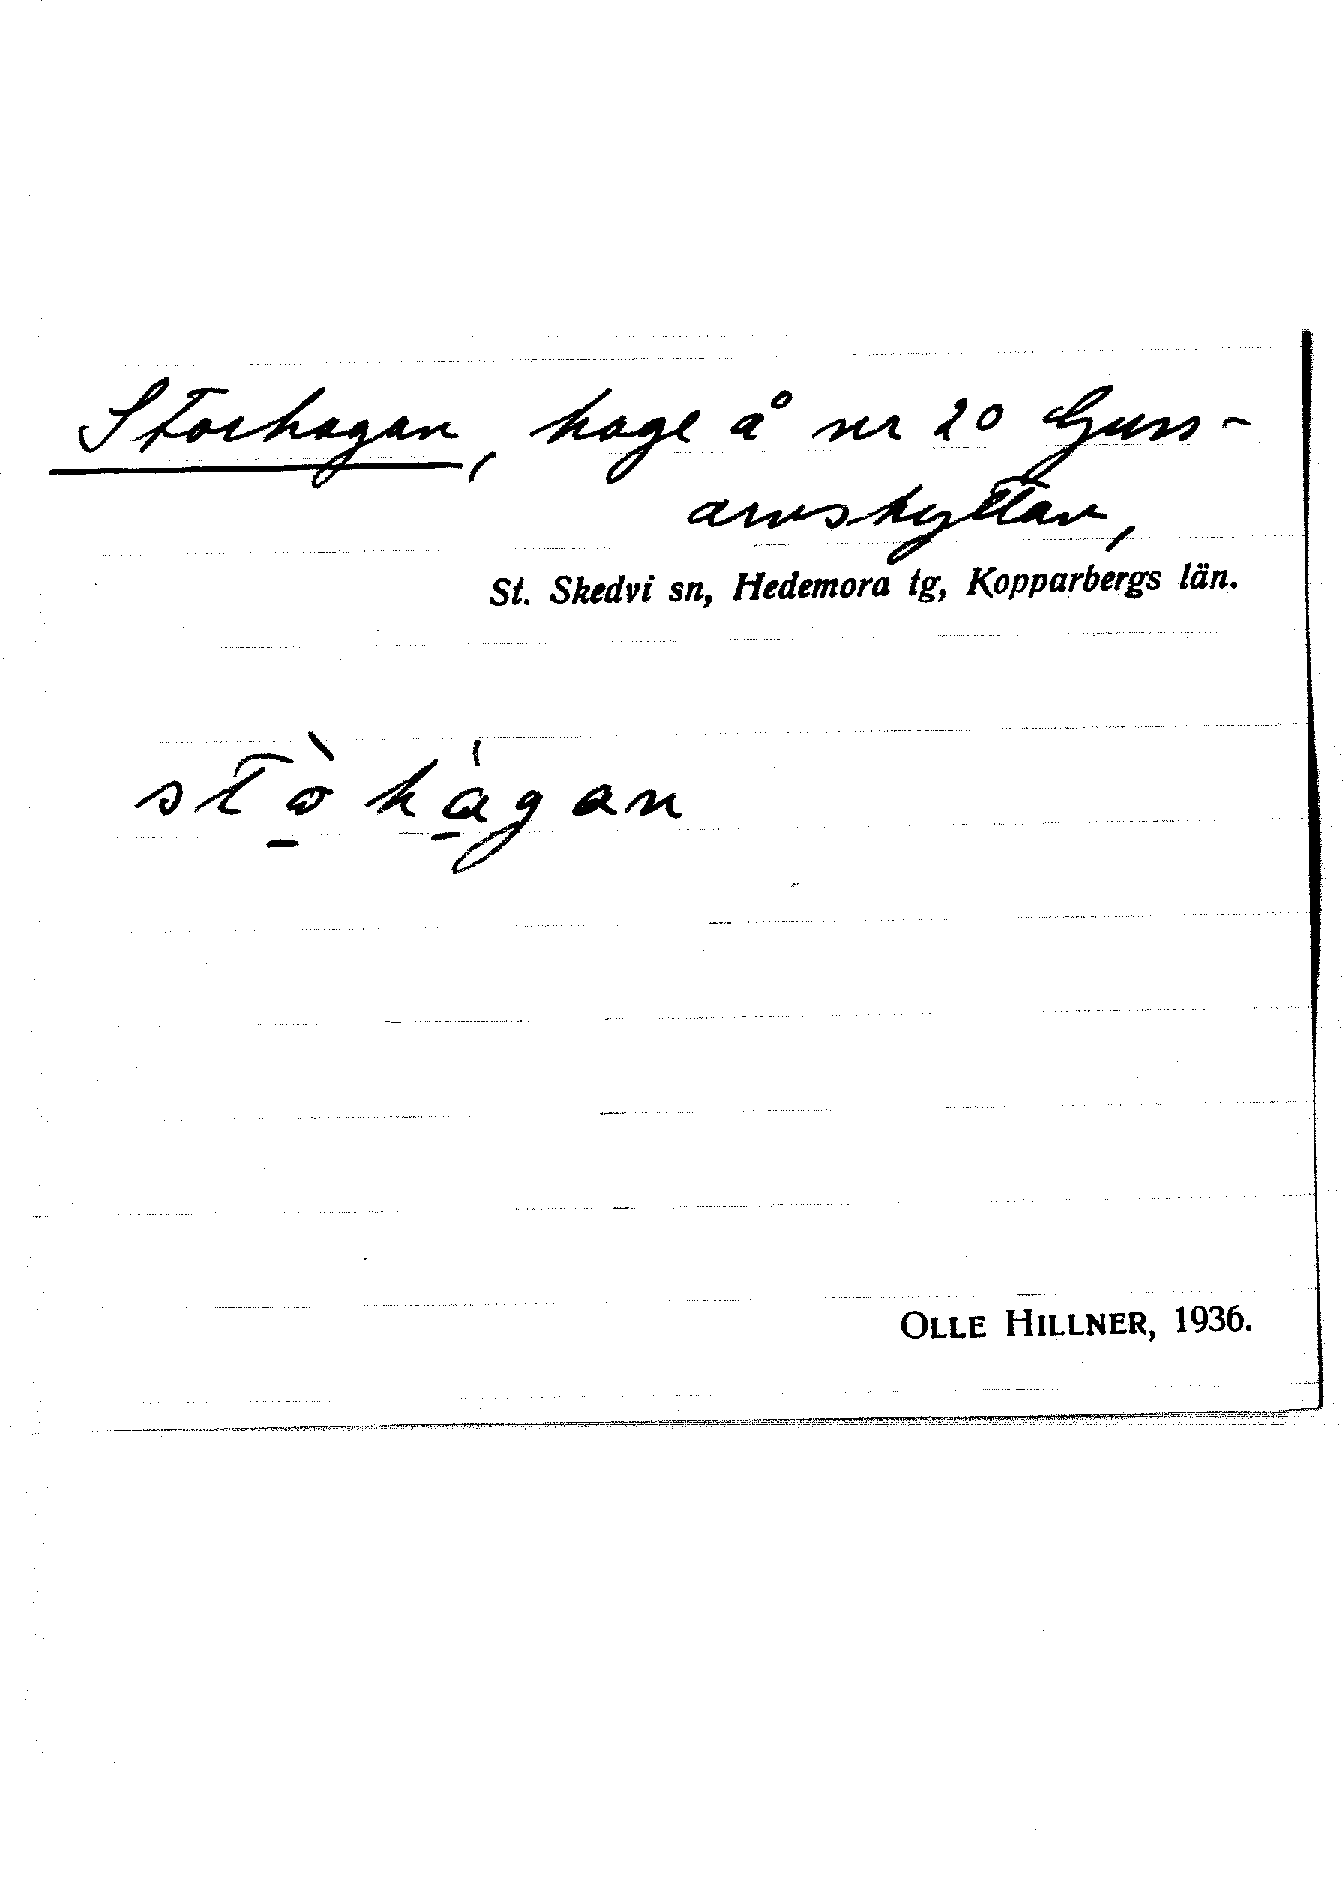 Storhagan, hage å nr 20 Gus-
arvshyttan,
St. Skedvi sn, Hedemora tg, Kopparbergs län.
stò̱há̱gan
OLLE HILLNER, 1936.